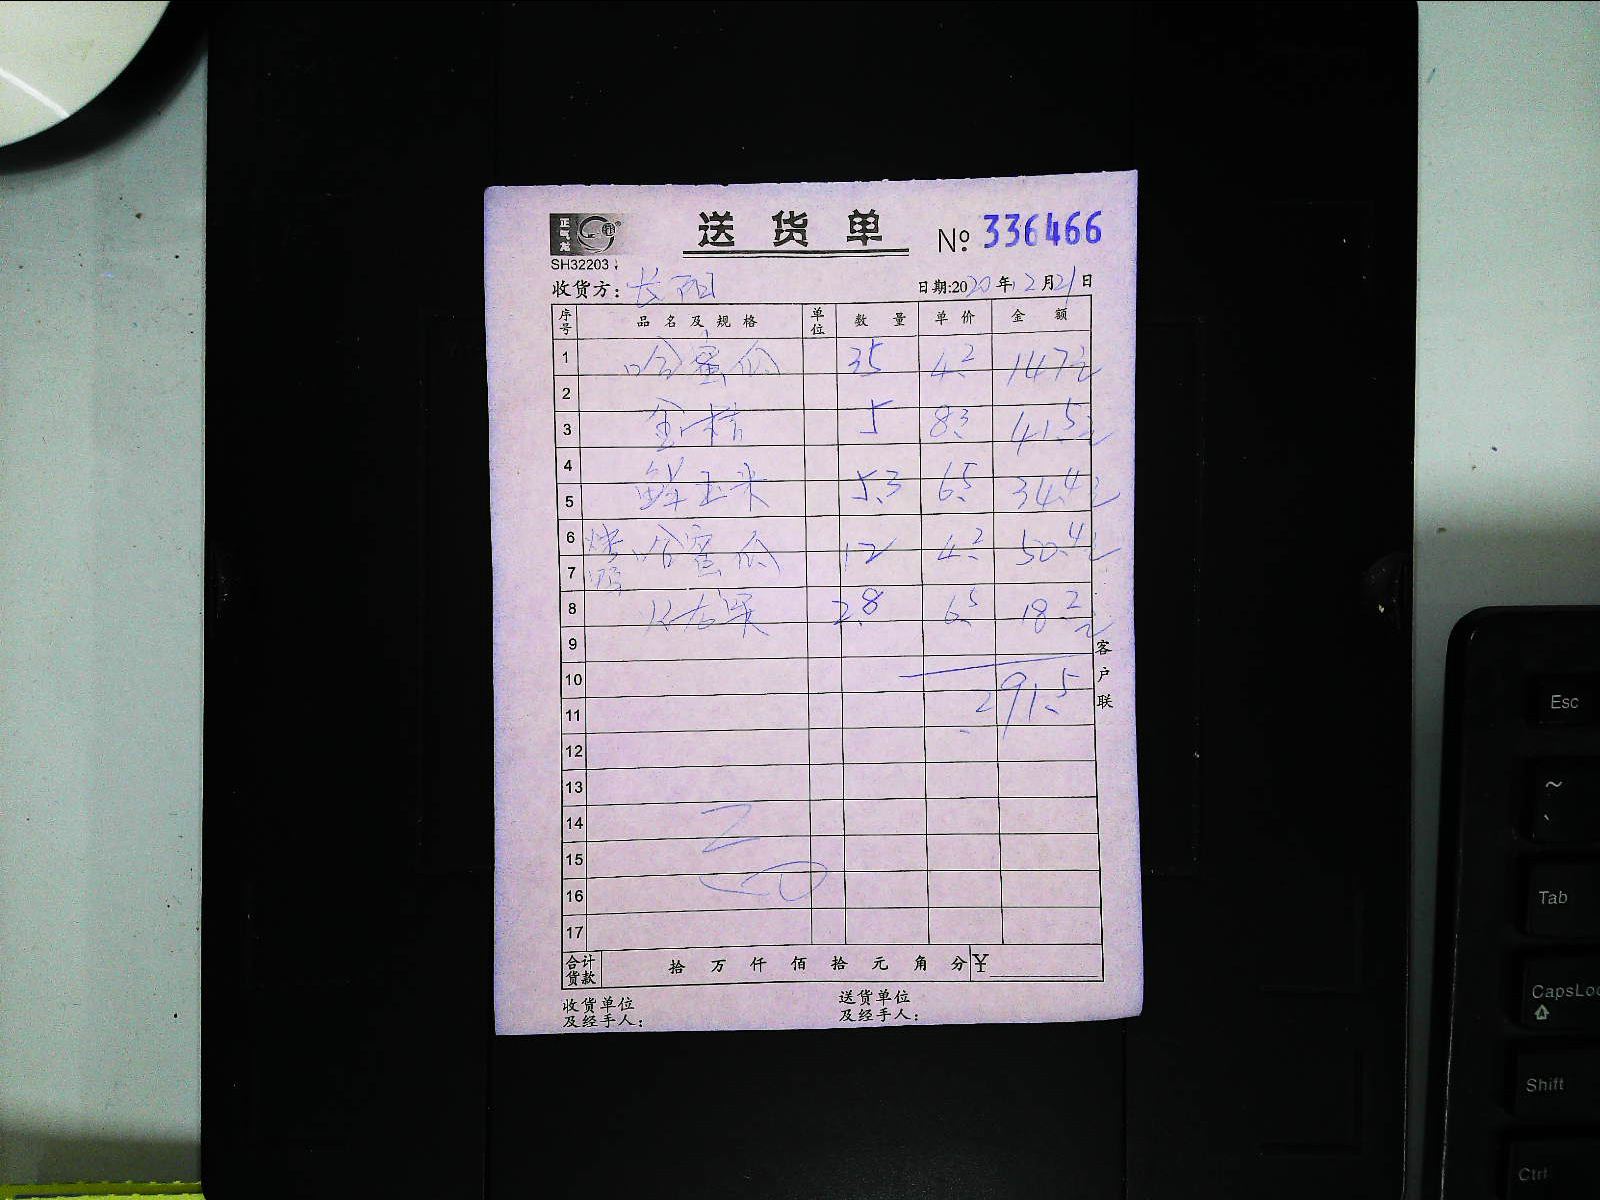 正气龙
送货单 № 336466
SH32203
收货方：长阳 日期:2020年12月21日
序号 品名及规格 单位 数量 单价 金额
1 哈蜜瓜 35 4.2 147元
2
3 金桔 5 8.3 41.5元
4
5 鲜玉米 5.3 6.5 34.4元
6 哈蜜瓜 12 4.2 50.4元
7
8 火龙果 2.8 6.5 18.2元
9
10
11 291.5
12
13
14
15
16
17
合计货款 拾 万 仟 佰 拾 元 角 分 ¥
收货单位及经手人： 送货单位及经手人：
客户联
Esc
~
、
Tab
CapsLoc
Shift
Ctrl